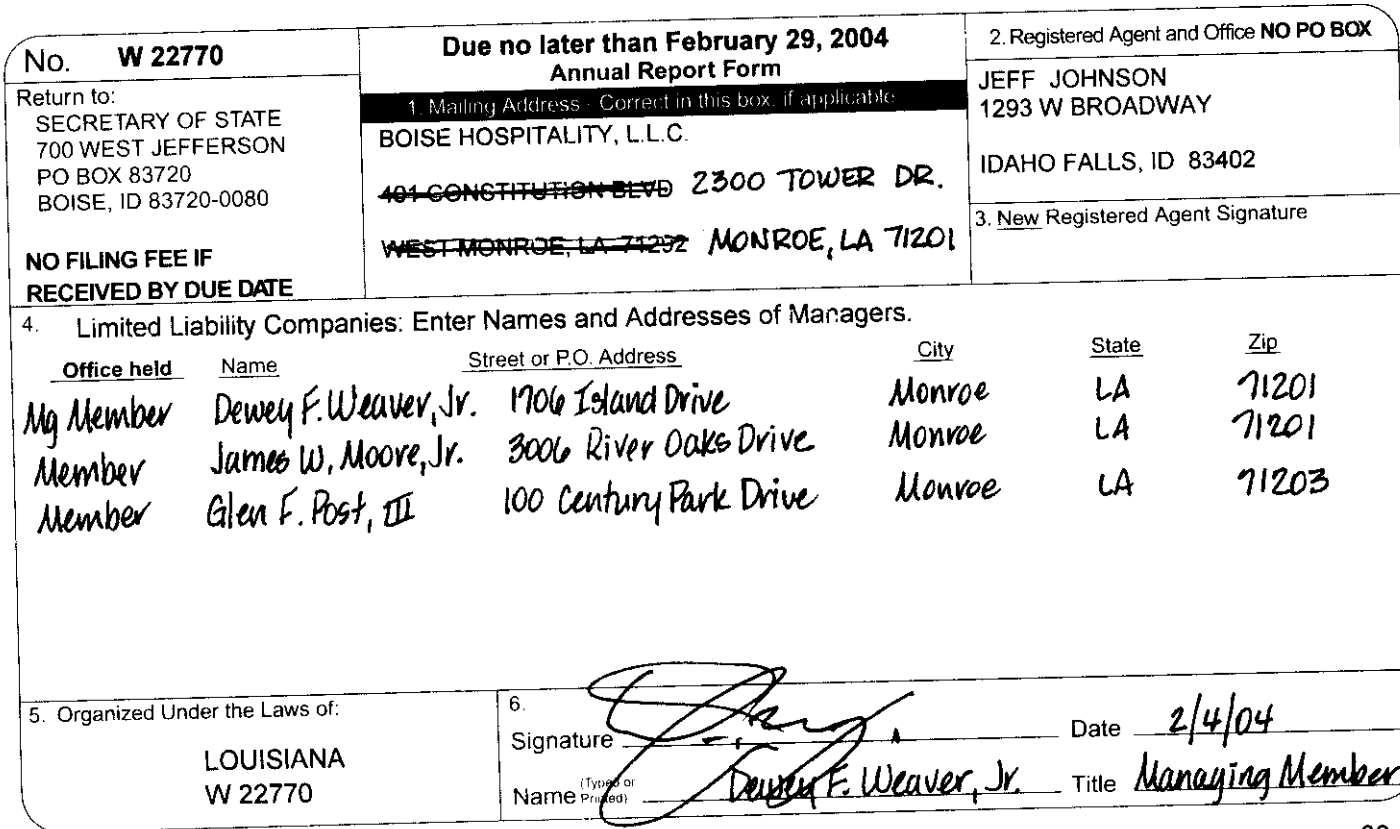 No. W 22770
Return to:
SECRETARY OF STATE
700 WEST JEFFERSON
PO BOX 83720
BOISE, ID 83720-0080
NO FILING FEE IF
RECEIVED BY DUE DATE
Due no later than February 29, 2004
Annual Report Form
1. Mailing Address - Correct in this box, if applicable
BOISE HOSPITALITY, L.L.C.
401 CONSTITUTION BLVD 2300 TOWER DR.
WEST MONROE, LA 71292 MONROE, LA 71201
2. Registered Agent and Office NO PO BOX
JEFF JOHNSON
1293 W BROADWAY
IDAHO FALLS, ID 83402
3. New Registered Agent Signature
4. Limited Liability Companies: Enter Names and Addresses of Managers.
Office held Name Street or P.O. Address City State Zip
Mg Member Dewey F. Weaver, Jr. 1706 Island Drive Monroe LA 71201
Member James W. Moore, Jr. 3006 River Oaks Drive Monroe LA 71201
Member Glen F. Post, III 100 Century Park Drive Monroe LA 71203
5. Organized Under the Laws of:
LOUISIANA
W 22770
6.
Signature Date 2/4/04
Name (Typed or Printed) Dewey F. Weaver, Jr. Title Managing Member